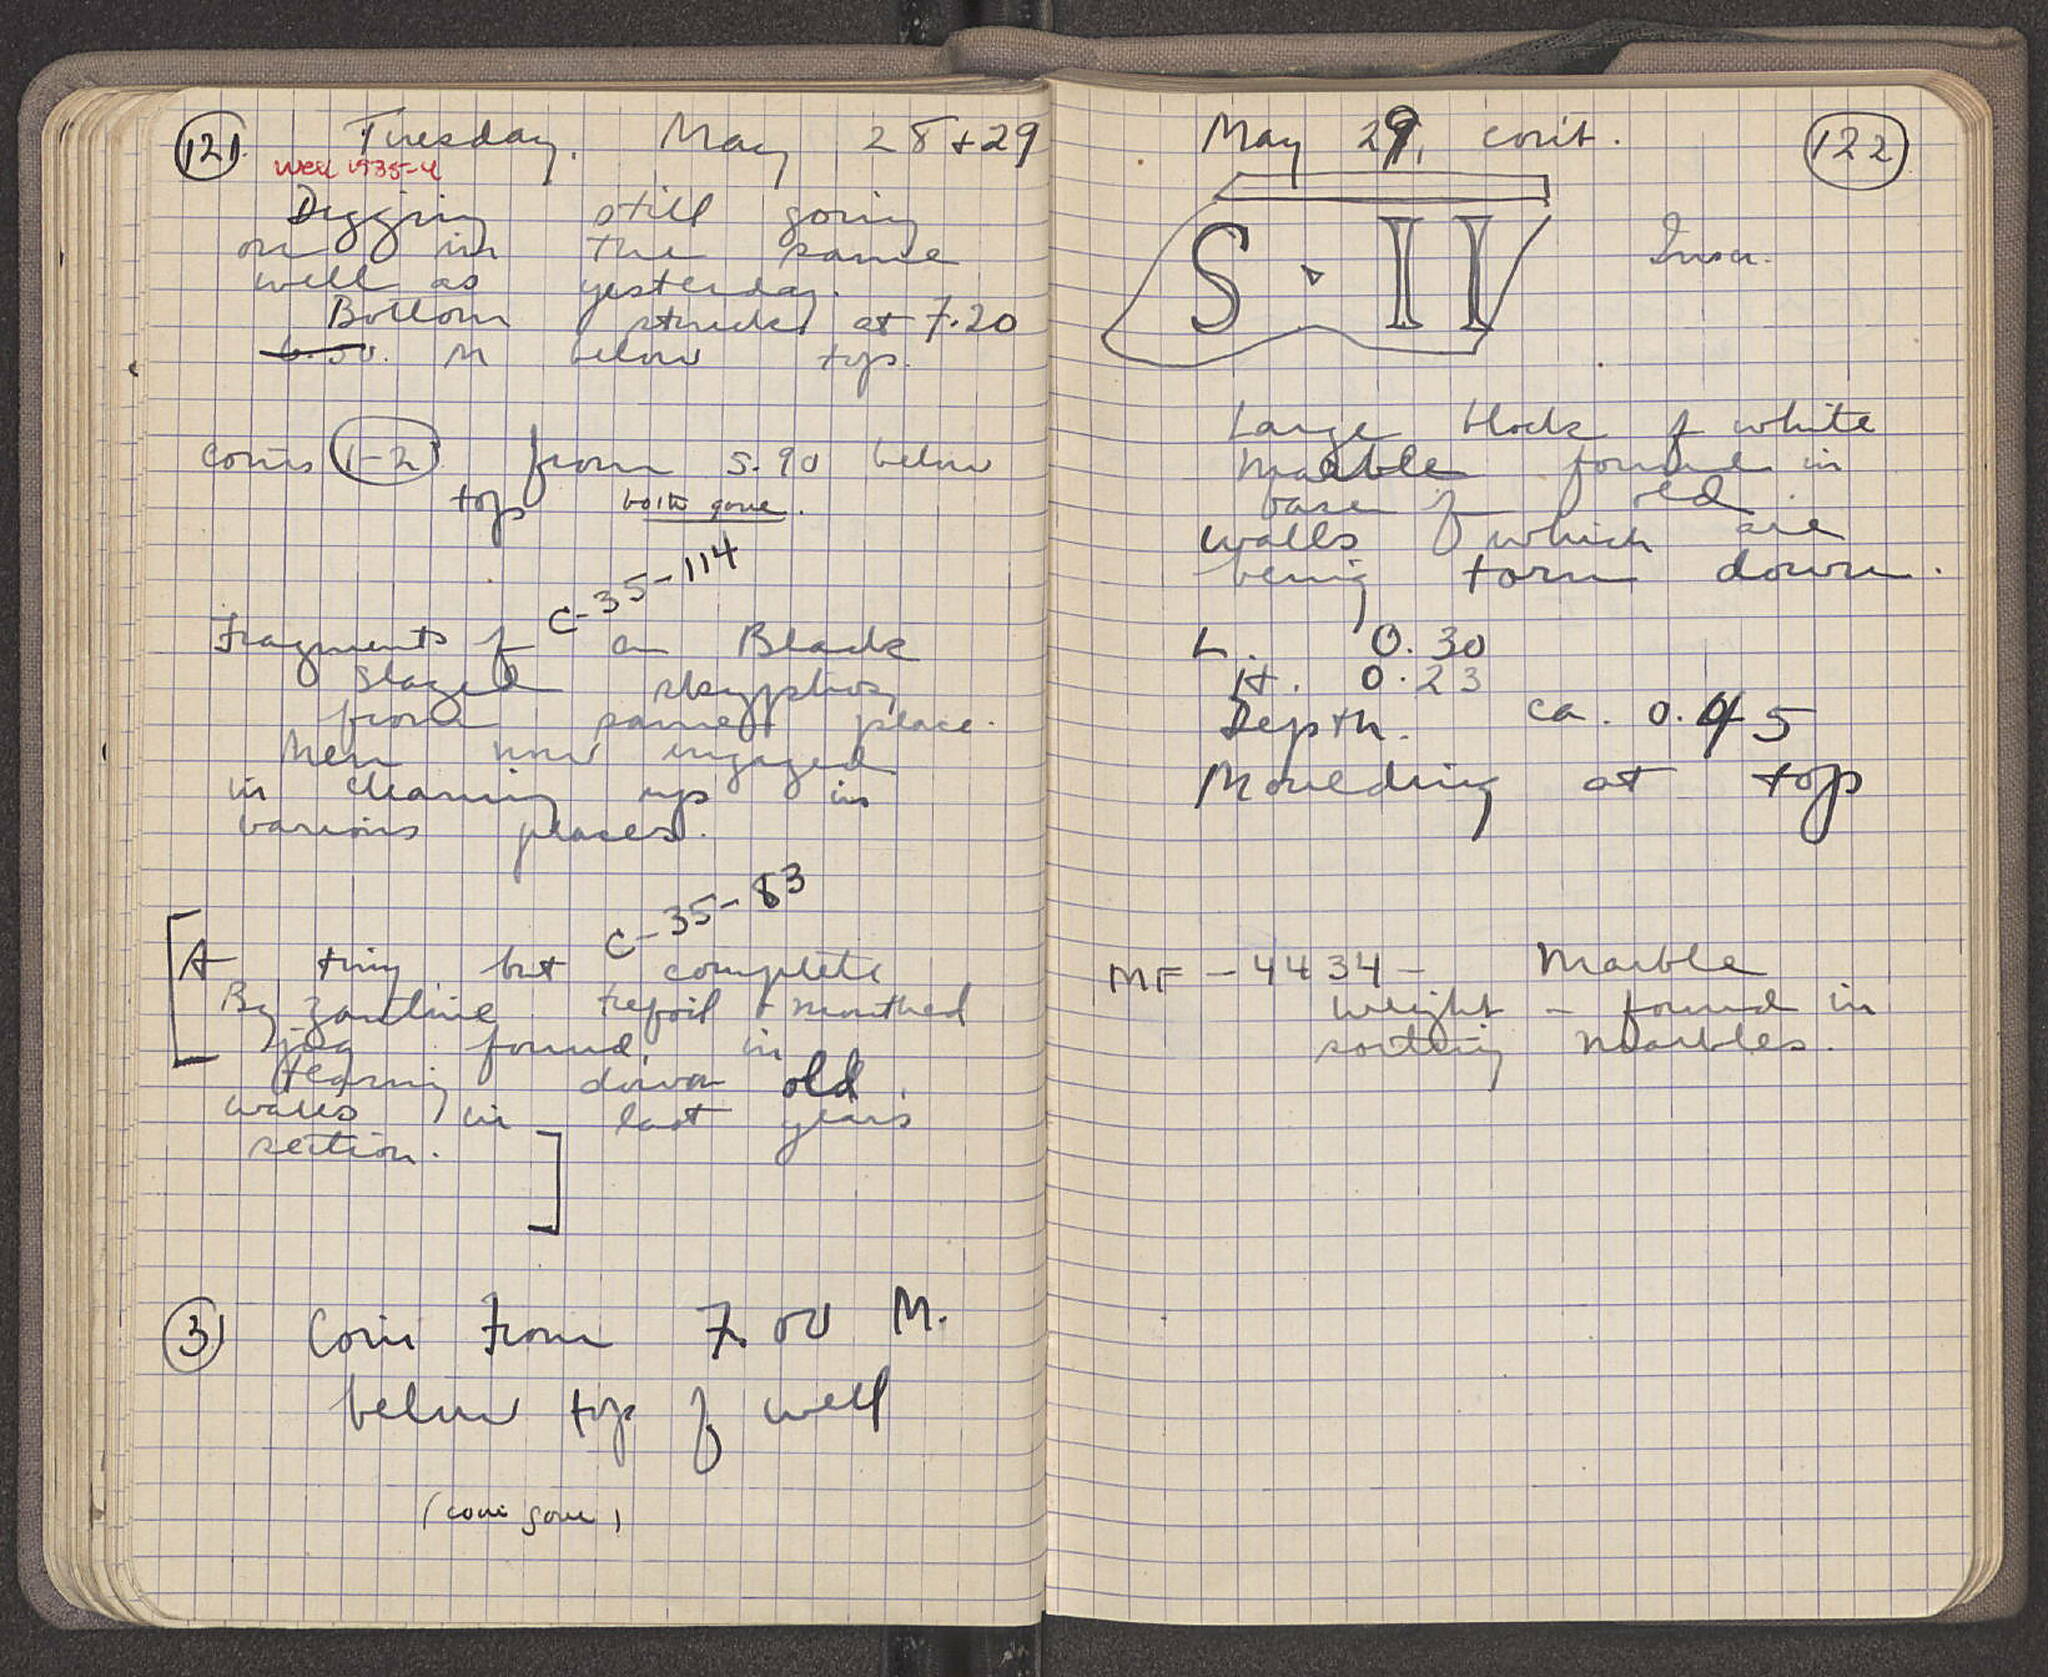 121. Tuesday. May 28 + 29
Well 1935-4
Digging still going
on in the same
well as yesterday.
Bottom struck at 7.20
6.50. M below top.
Coins 1-2 from 5.90 below
top both gone.
C-35-114
Fragments of a Black
glazed skyphos,
from same place.
Men now engaged
in cleaning up in
various places.
C-35-83
[A tiny but complete
Byzantine trefoil-mouthed
jug found, in
tearing down old
walls in last years
section.]
3) Coin from 7.00 M.
below top of well
(coin gone)
May 29, con't. 122
S · IV Inscr.
Large block of white
marble found in
base of old
walls which are
being torn down.
L. 0.30
H. 0.23
Depth. ca. 0.45
Moulding at top
MF-4434- Marble
weight - found in
sorting marbles.